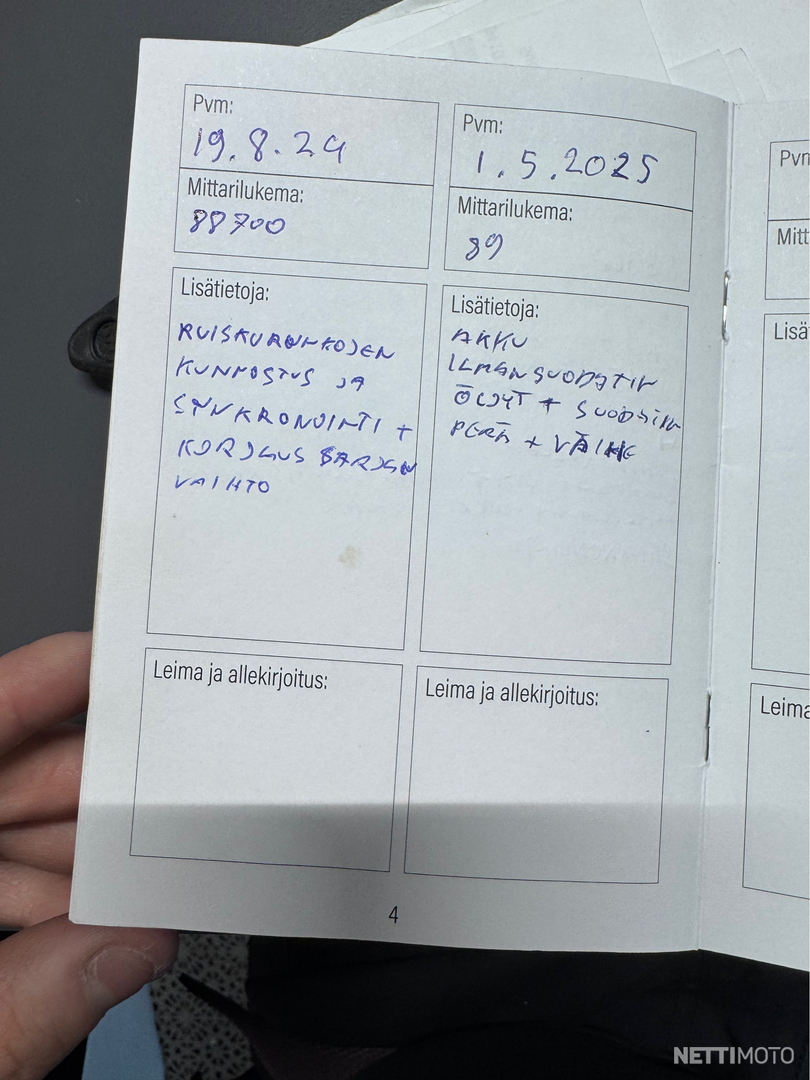 Pvm:
19.8.24
Mittarilukema:
88700
Lisätietoja:
RUISKURUNKOJEN
KUNNOSTUS JA
SYNKRONOINTI +
KORJAUS SARJAN
VAIHTO
Leima ja allekirjoitus:
Pvm:
1.5.2025
Mittarilukema:
89
Lisätietoja:
AKKU
ILMANSUODATIN
ÖLJYT + SUODATIN
PERÄ +
Leima ja allekirjoitus:
4
Pvm
Mitt
Lisä
Leima
NETTIMOTO